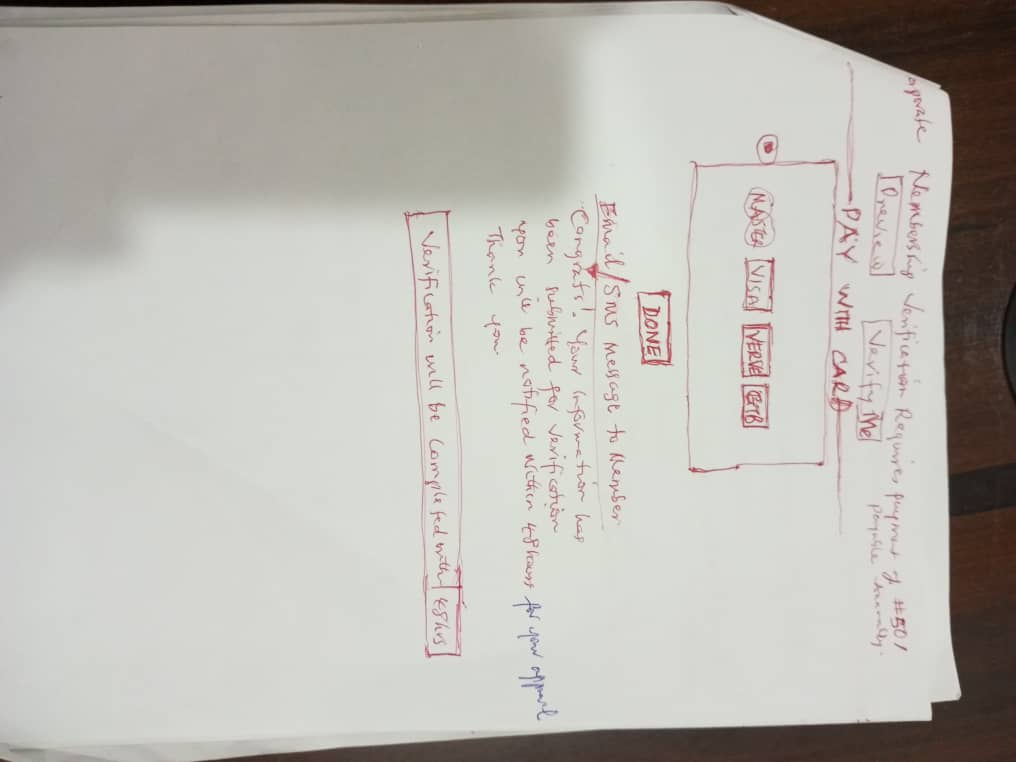 orporate Membership Verification Requires payment of #50/
payable Annually.
Preview Verify Me
PAY WITH CARD
MASTER VISA VERVE GTB
DONE
Email/SMS Message to Member
"Congrats!. Your information has
been submitted for verification
you will be notified within 48hours for your approval
Thank you.
Verification will be Completed with 48hrs